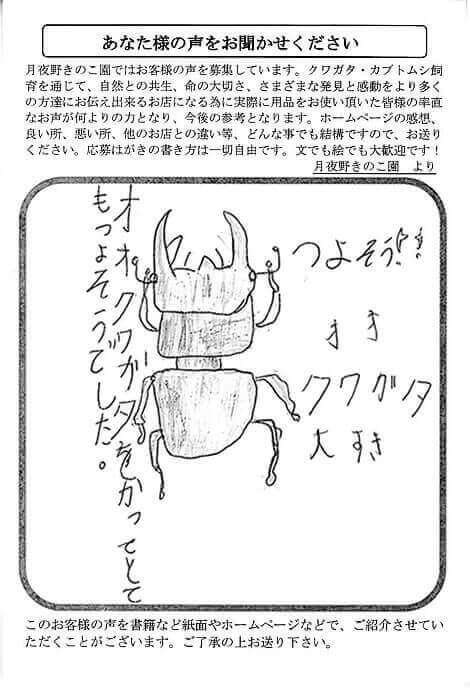 あなた様の声をお聞かせください
月夜野きのこ園ではお客様の声を募集しています。クワガタ・カブトムシ飼
育を通じて、自然との共生、命の大切さ、さまざまな発見と感動をより多く
の方達にお伝え出来るお店になる為に実際に用品をお使い頂いた皆様の率直
なお声が何よりの力となり、今後の参考となります。ホームページの感想、
良い所、悪い所、他のお店との違い等、どんな事でも結構ですので、お送り
ください。応募はがきの書き方は一切自由です。文でも絵でも大歓迎です！
月夜野きのこ園　より
オオクワガタをかってとて
もつよそうでした。
つよそう!!
オオ
クワガタ
大すき
このお客様の声を書籍など紙面やホームページなどで、ご紹介させてい
ただくことがございます。ご了承の上お送り下さい。